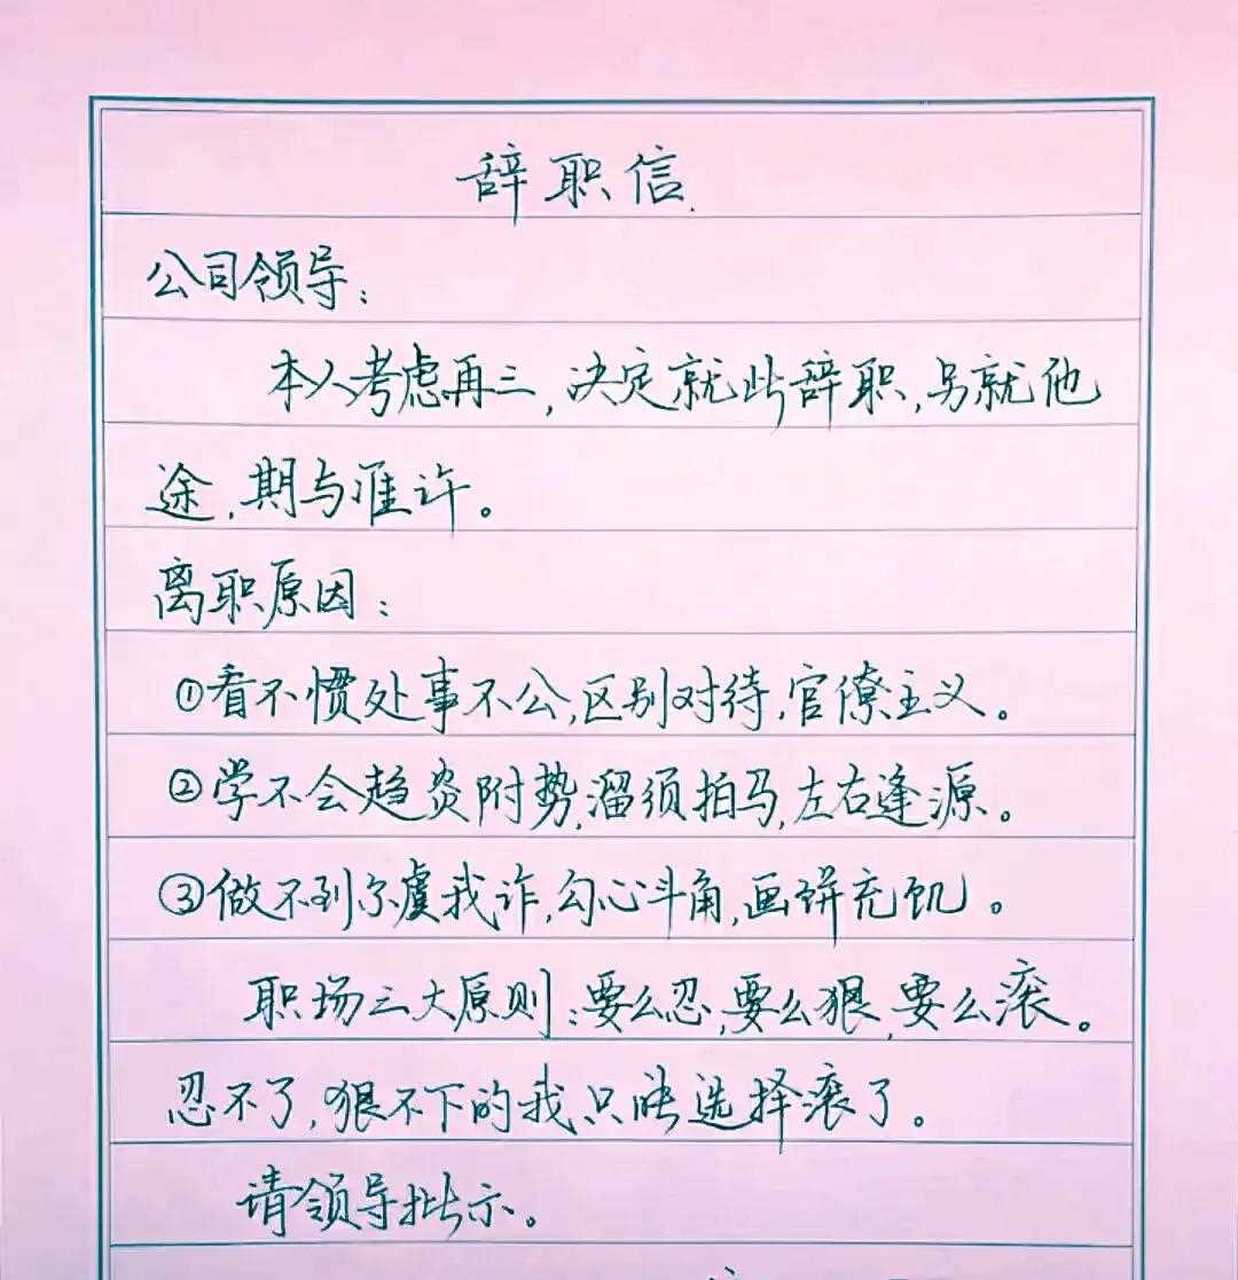 辞职信.
公司领导：
本人考虑再三,决定就此辞职,另就他
途,期与准许。
离职原因：
①看不惯处事不公,区别对待,官僚主义。
②学不会趋炎附势,溜须拍马,左右逢源。
③做不到尔虞我诈,勾心斗角,画饼充饥。
职场三大原则：要么忍,要么狠,要么滚。
忍不了,狠不下的我只能选择滚了。
请领导批示。